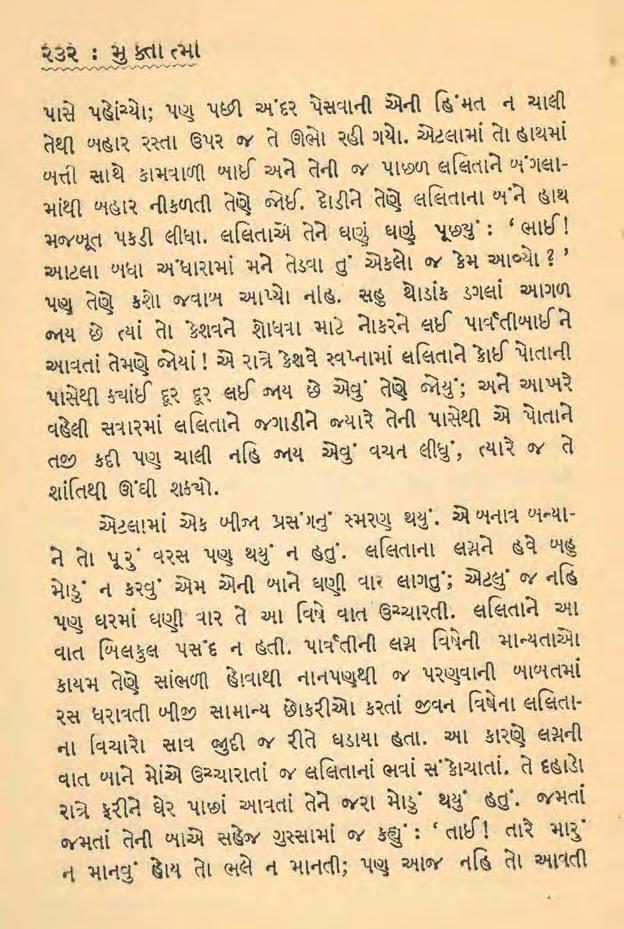 ૨૩૨ : મુક્તાત્મા
પાસે પહોંચ્યો; પણ પછી અંદર પેસવાની એની હિંમત ન ચાલી
તેથી બહાર રસ્તા ઉપર જ તે ઊભો રહી ગયો. એટલામાં તો હાથમાં
બત્તી સાથે કામવાળી બાઈ અને તેની જ પાછળ લલિતાને બંગલા-
માંથી બહાર નીકળતી તેણે જોઈ. દોડીને તેણે લલિતાના બંને હાથ
મજબૂત પકડી લીધા. લલિતાએ તેને ઘણું ઘણું પૂછ્યું : ‘ ભાઈ !
આટલા બધા અંધારામાં મને તેડવા તું એકલો જ કેમ આવ્યો ? ’
પણ તેણે કશો જવાબ આપ્યો નહિ. સહુ થોડાંક ડગલાં આગળ
જાય છે ત્યાં તો કેશવને શોધવા માટે નોકરને લઈ પાર્વતીબાઈને
આવતાં તેમણે જોયાં ! એ રાત્રે કેશવે સ્વપ્નામાં લલિતાને કોઈ પોતાની
પાસેથી ક્યાંઈ દૂર દૂર લઈ જાય છે એવું તેણે જોયું; અને આખરે
વહેલી સવારમાં લલિતાને જગાડીને જ્યારે તેની પાસેથી એ પોતાને
તજી કદી પણ ચાલી નહિ જાય એવું વચન લીધું, ત્યારે જ તે
શાંતિથી ઊંઘી શક્યો.
એટલામાં એક બીજા પ્રસંગનું સ્મરણ થયું. એ બનાવ બન્યા-
ને તો પૂરું વરસ પણ થયું ન હતું. લલિતાના લગ્નને હવે બહુ
મોડું ન કરવું એમ એની બાને ઘણી વાર લાગતું; એટલું જ નહિ
પણ ઘરમાં ઘણી વાર તે આ વિષે વાત ઉચ્ચારતી. લલિતાને આ
વાત બિલકુલ પસંદ ન હતી. પાર્વતીની લગ્ન વિષેની માન્યતાઓ
કાયમ તેણે સાંભળી હોવાથી નાનપણથી જ પરણવાની બાબતમાં
રસ ધરાવતી બીજી સામાન્ય છોકરીઓ કરતાં જીવન વિષેના લલિતા-
ના વિચારો સાવ જુદી જ રીતે ઘડાયા હતા. આ કારણે લગ્નની
વાત બાને મોંએ ઉચ્ચારાતાં જ લલિતાનાં ભવાં સંકોચાતાં. તે દહાડો
રાત્રે ફરીને ઘેર પાછાં આવતાં તેને જરા મોડું થયું હતું. જમતાં
જમતાં તેની બાએ સહેજ ગુસ્સામાં જ કહ્યું : ‘ તાઈ ! તારે મારું
ન માનવું હોય તો ભલે ન માનતી; પણ આજ નહિ તો આવતી